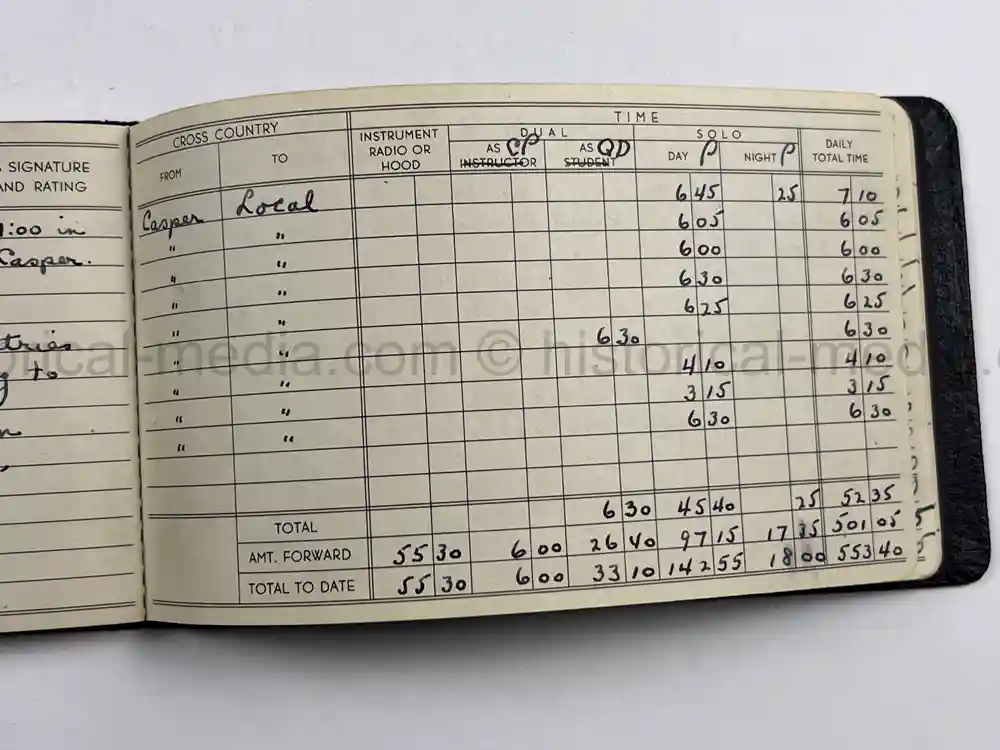 SIGNATURE
AND RATING
1:00 in
Casper.
tries
to
TIME
CROSS COUNTRY INSTRUMENT RADIO OR HOOD DUAL SOLO DAILY TOTAL TIME
FROM TO AS INSTRUCTOR CP AS STUDENT QD DAY P NIGHT P
Casper Local 6 45 25 7 10
" " 6 05 6 05
" " 6 00 6 00
" " 6 30 6 30
" " 6 25 6 25
" " 6 30 6 30
" " 4 10 4 10
" " 3 15 3 15
" " 6 30 6 30
TOTAL 6 30 45 40 25 52 35
AMT. FORWARD 55 30 6 00 26 40 97 15 17 35 501 05
TOTAL TO DATE 55 30 6 00 33 10 142 55 18 00 553 40
historical-media.com © historical-media.com